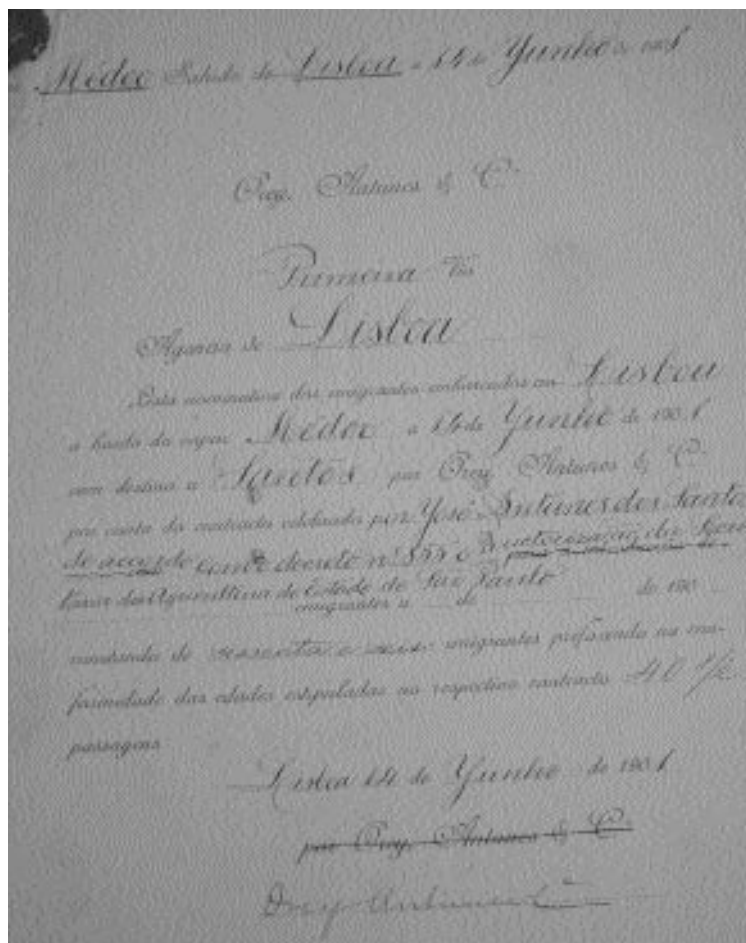 Médoc Sahida de Lisboa a 14 de Yunho de 1901
Orey, Antunes & C.
Primeira Via
Agencia de Lisboa
Lista nominativa dos emigrantes embarcados em Lisboa
a bordo do vapor Médoc a 14 de Yunho de 1901
com destino a Santos por Orey, Antunes & C.
por conta do contracto celebrado por Yosé Antunes dos Santos
de accordo com o decreto nº 355 e auctorização da Secre
taria da Agricultura do Estado de São Paulo
emigrantes a de de 190
constando de sessenta e seis emigrantes prefazendo na con-
formidade das edades estipuladas no respectivo contracto 40 1/2
passagens
Lisboa 14 de Yunho de 1901
por Orey, Antunes & C.
Orey Antunes & C